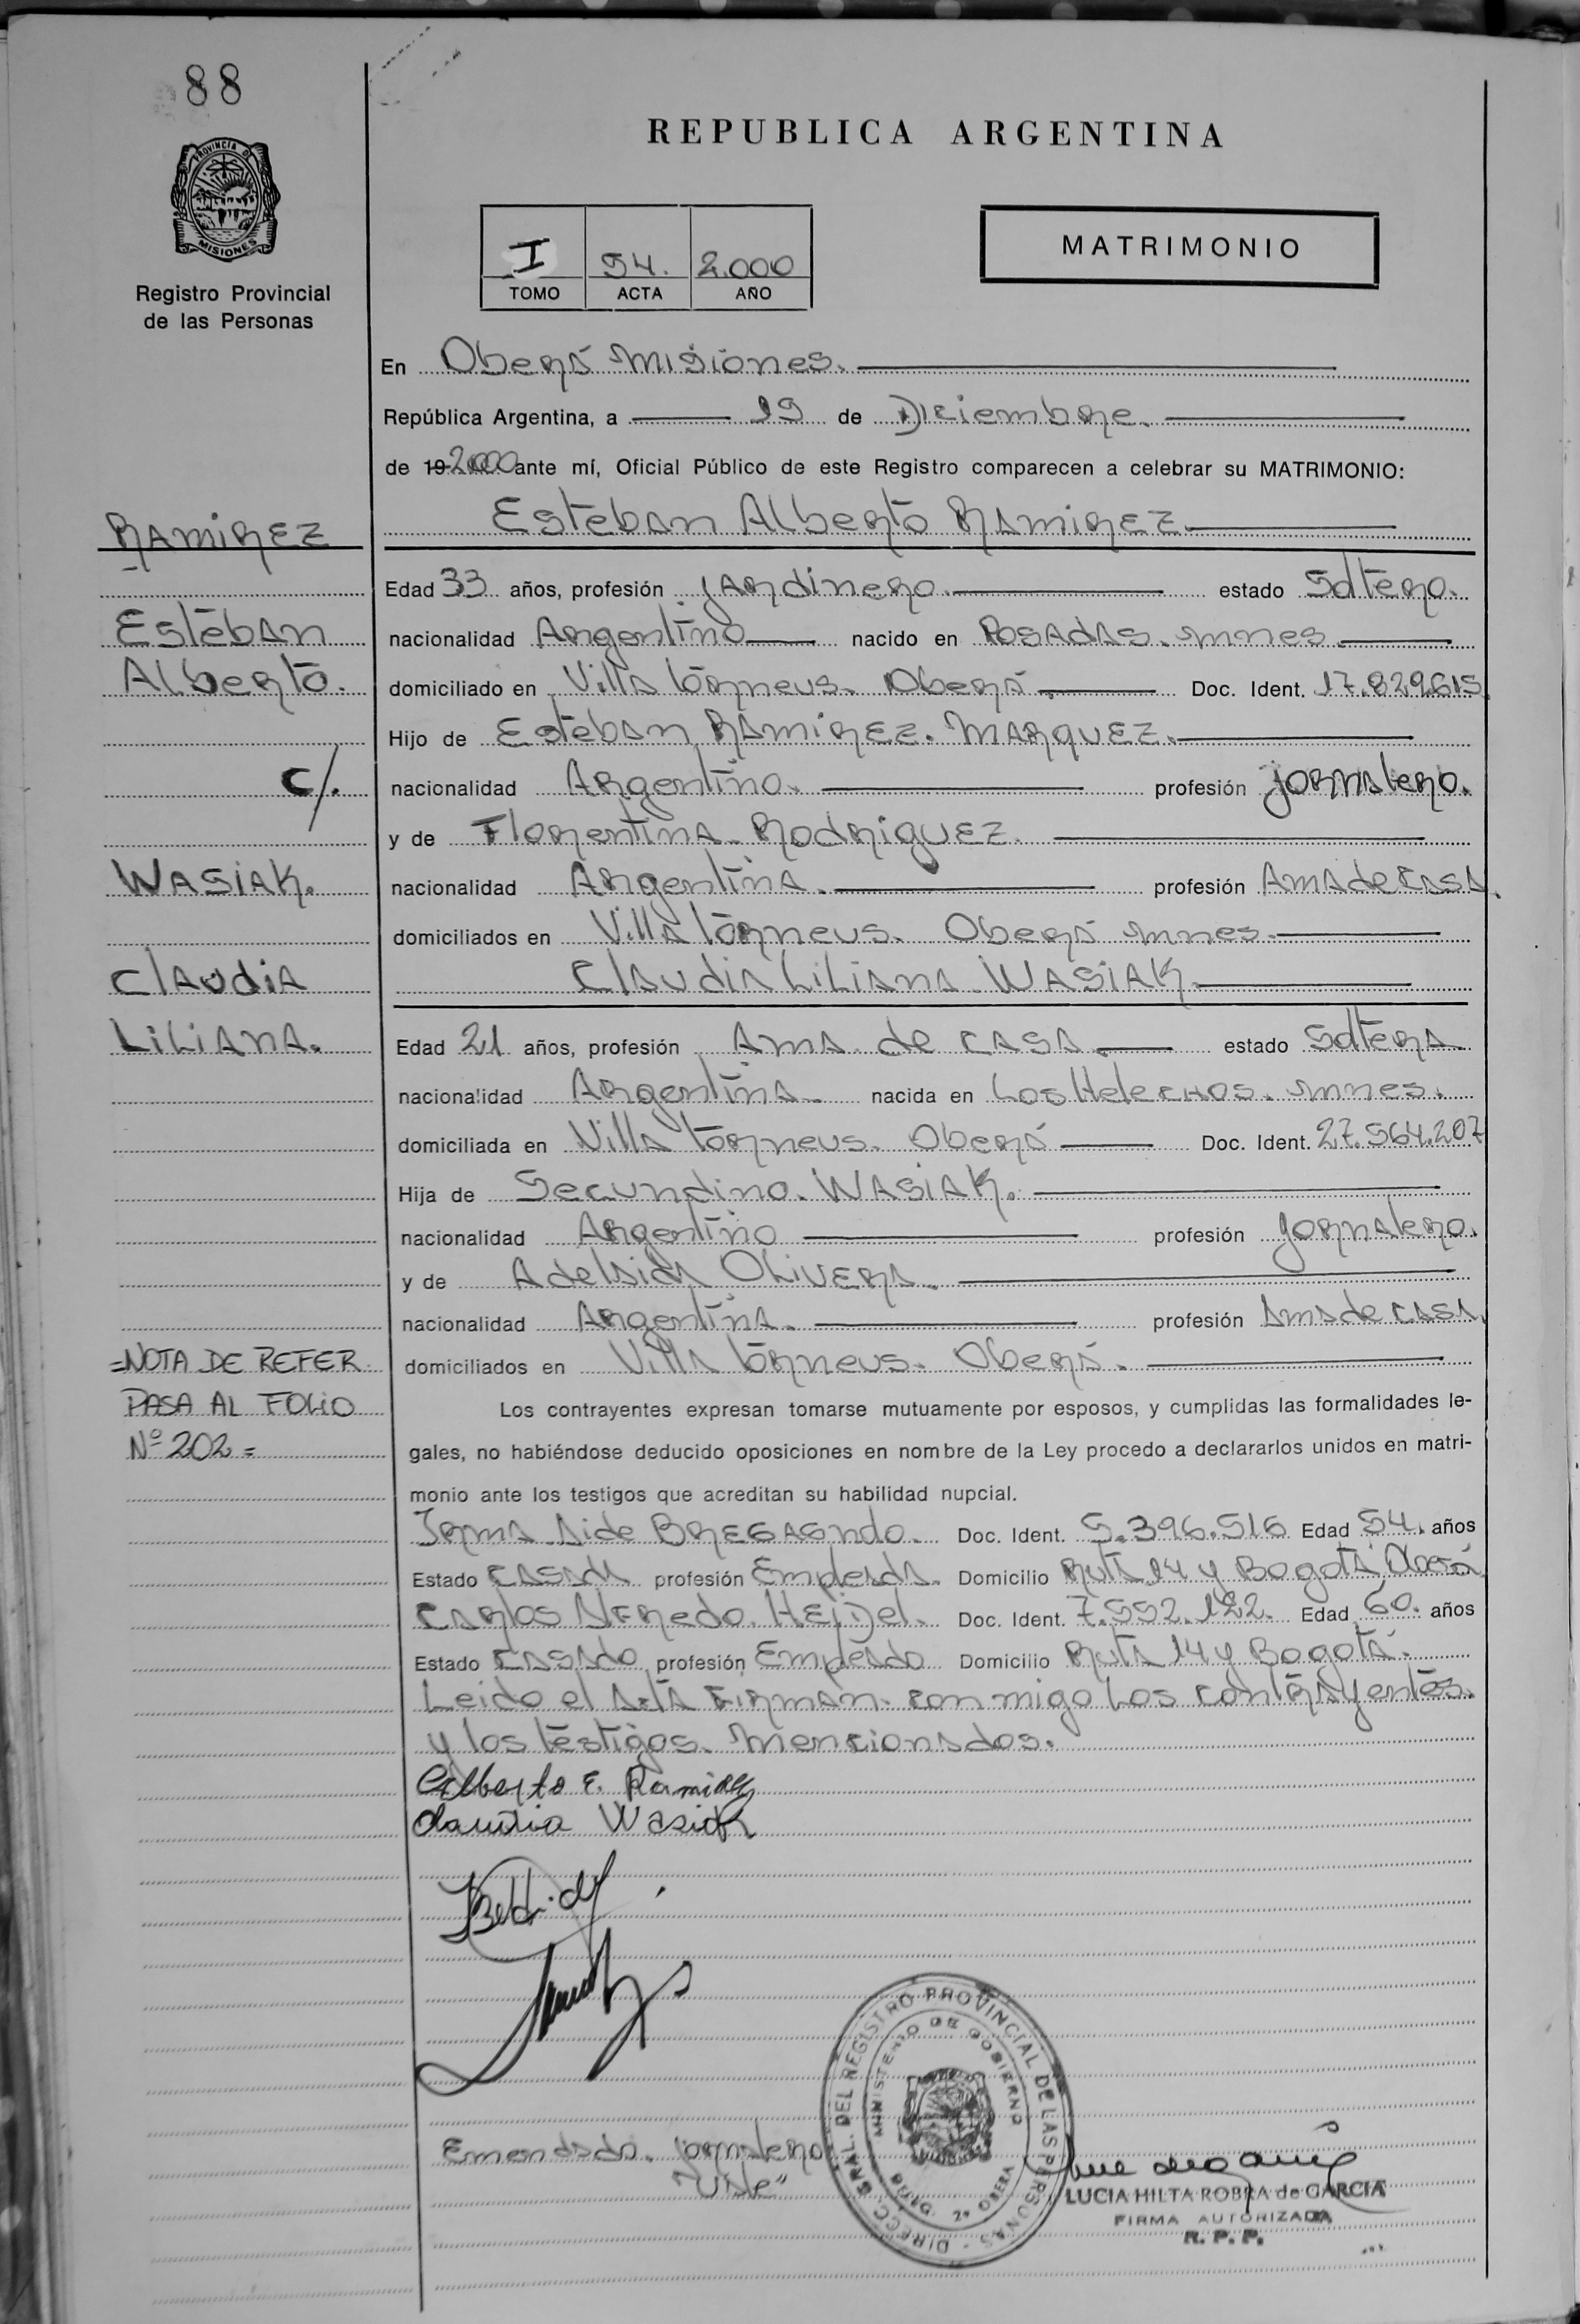 88
PROVINCIA DE
MISIONES
Registro Provincial
de las Personas
REPUBLICA ARGENTINA
I 94. 2.000
TOMO ACTA AÑO
MATRIMONIO
En Oberá Misiones.
República Argentina, a 19 de Diciembre.
de 19 2000 ante mí, Oficial Público de este Registro comparecen a celebrar su MATRIMONIO:
Esteban Alberto RAMIREZ
RAMIREZ
Esteban
Alberto.
c/.
WASIAK.
Claudia
Liliana.
Edad 33 años, profesión jardinero. estado Soltero.
nacionalidad Argentino nacido en Posadas. Mnes.
domiciliado en Villa Torneus. Oberá Doc. Ident. 17.829615
Hijo de Esteban RAMIREZ. MARQUEZ.
nacionalidad Argentino. profesión jornalero.
y de Florentina Rodriguez.
nacionalidad Argentina. profesión Ama de casa.
domiciliados en Villa Torneus. Oberá Mnes.
Claudia Liliana WASIAK.
Edad 21 años, profesión Ama de casa. estado Soltera
nacionalidad Argentina. nacida en Los Helechos. Mnes.
domiciliada en Villa Torneus. Oberá Doc. Ident. 27.564.207
Hija de Secundino. WASIAK.
nacionalidad Argentino profesión jornalero.
y de Adelaida OLIVERA.
nacionalidad Argentina. profesión Ama de casa
domiciliados en Villa Torneus. Oberá.
=NOTA DE REFER.
PASA AL FOLIO
Nº 202=
Los contrayentes expresan tomarse mutuamente por esposos, y cumplidas las formalidades le-
gales, no habiéndose deducido oposiciones en nombre de la Ley procedo a declararlos unidos en matri-
monio ante los testigos que acreditan su habilidad nupcial.
Irma Aide Doc. Ident. 5.396.516 Edad 54. años
Estado casada profesión Empleada. Domicilio Ruta 14 y Bogotá Oberá
Carlos Alfredo. Doc. Ident. 7.552.122. Edad 60. años
Estado casado profesión Empleado Domicilio Ruta 14 y Bogotá.
Leido el Acta Firman. conmigo los contrayentes.
y los testigos. mencionados.
Alberto E. Ramirez
Claudia Wasiak
Emendado. jornalero
"Vale"
DIRECC. GRAL. DEL REGISTRO PROVINCIAL DE LAS PERSONAS
MINISTERIO DE GOBIERNO
2ª OBERA
LUCIA HILTA ROBRA de GARCIA
FIRMA AUTORIZADA
R. P. P.